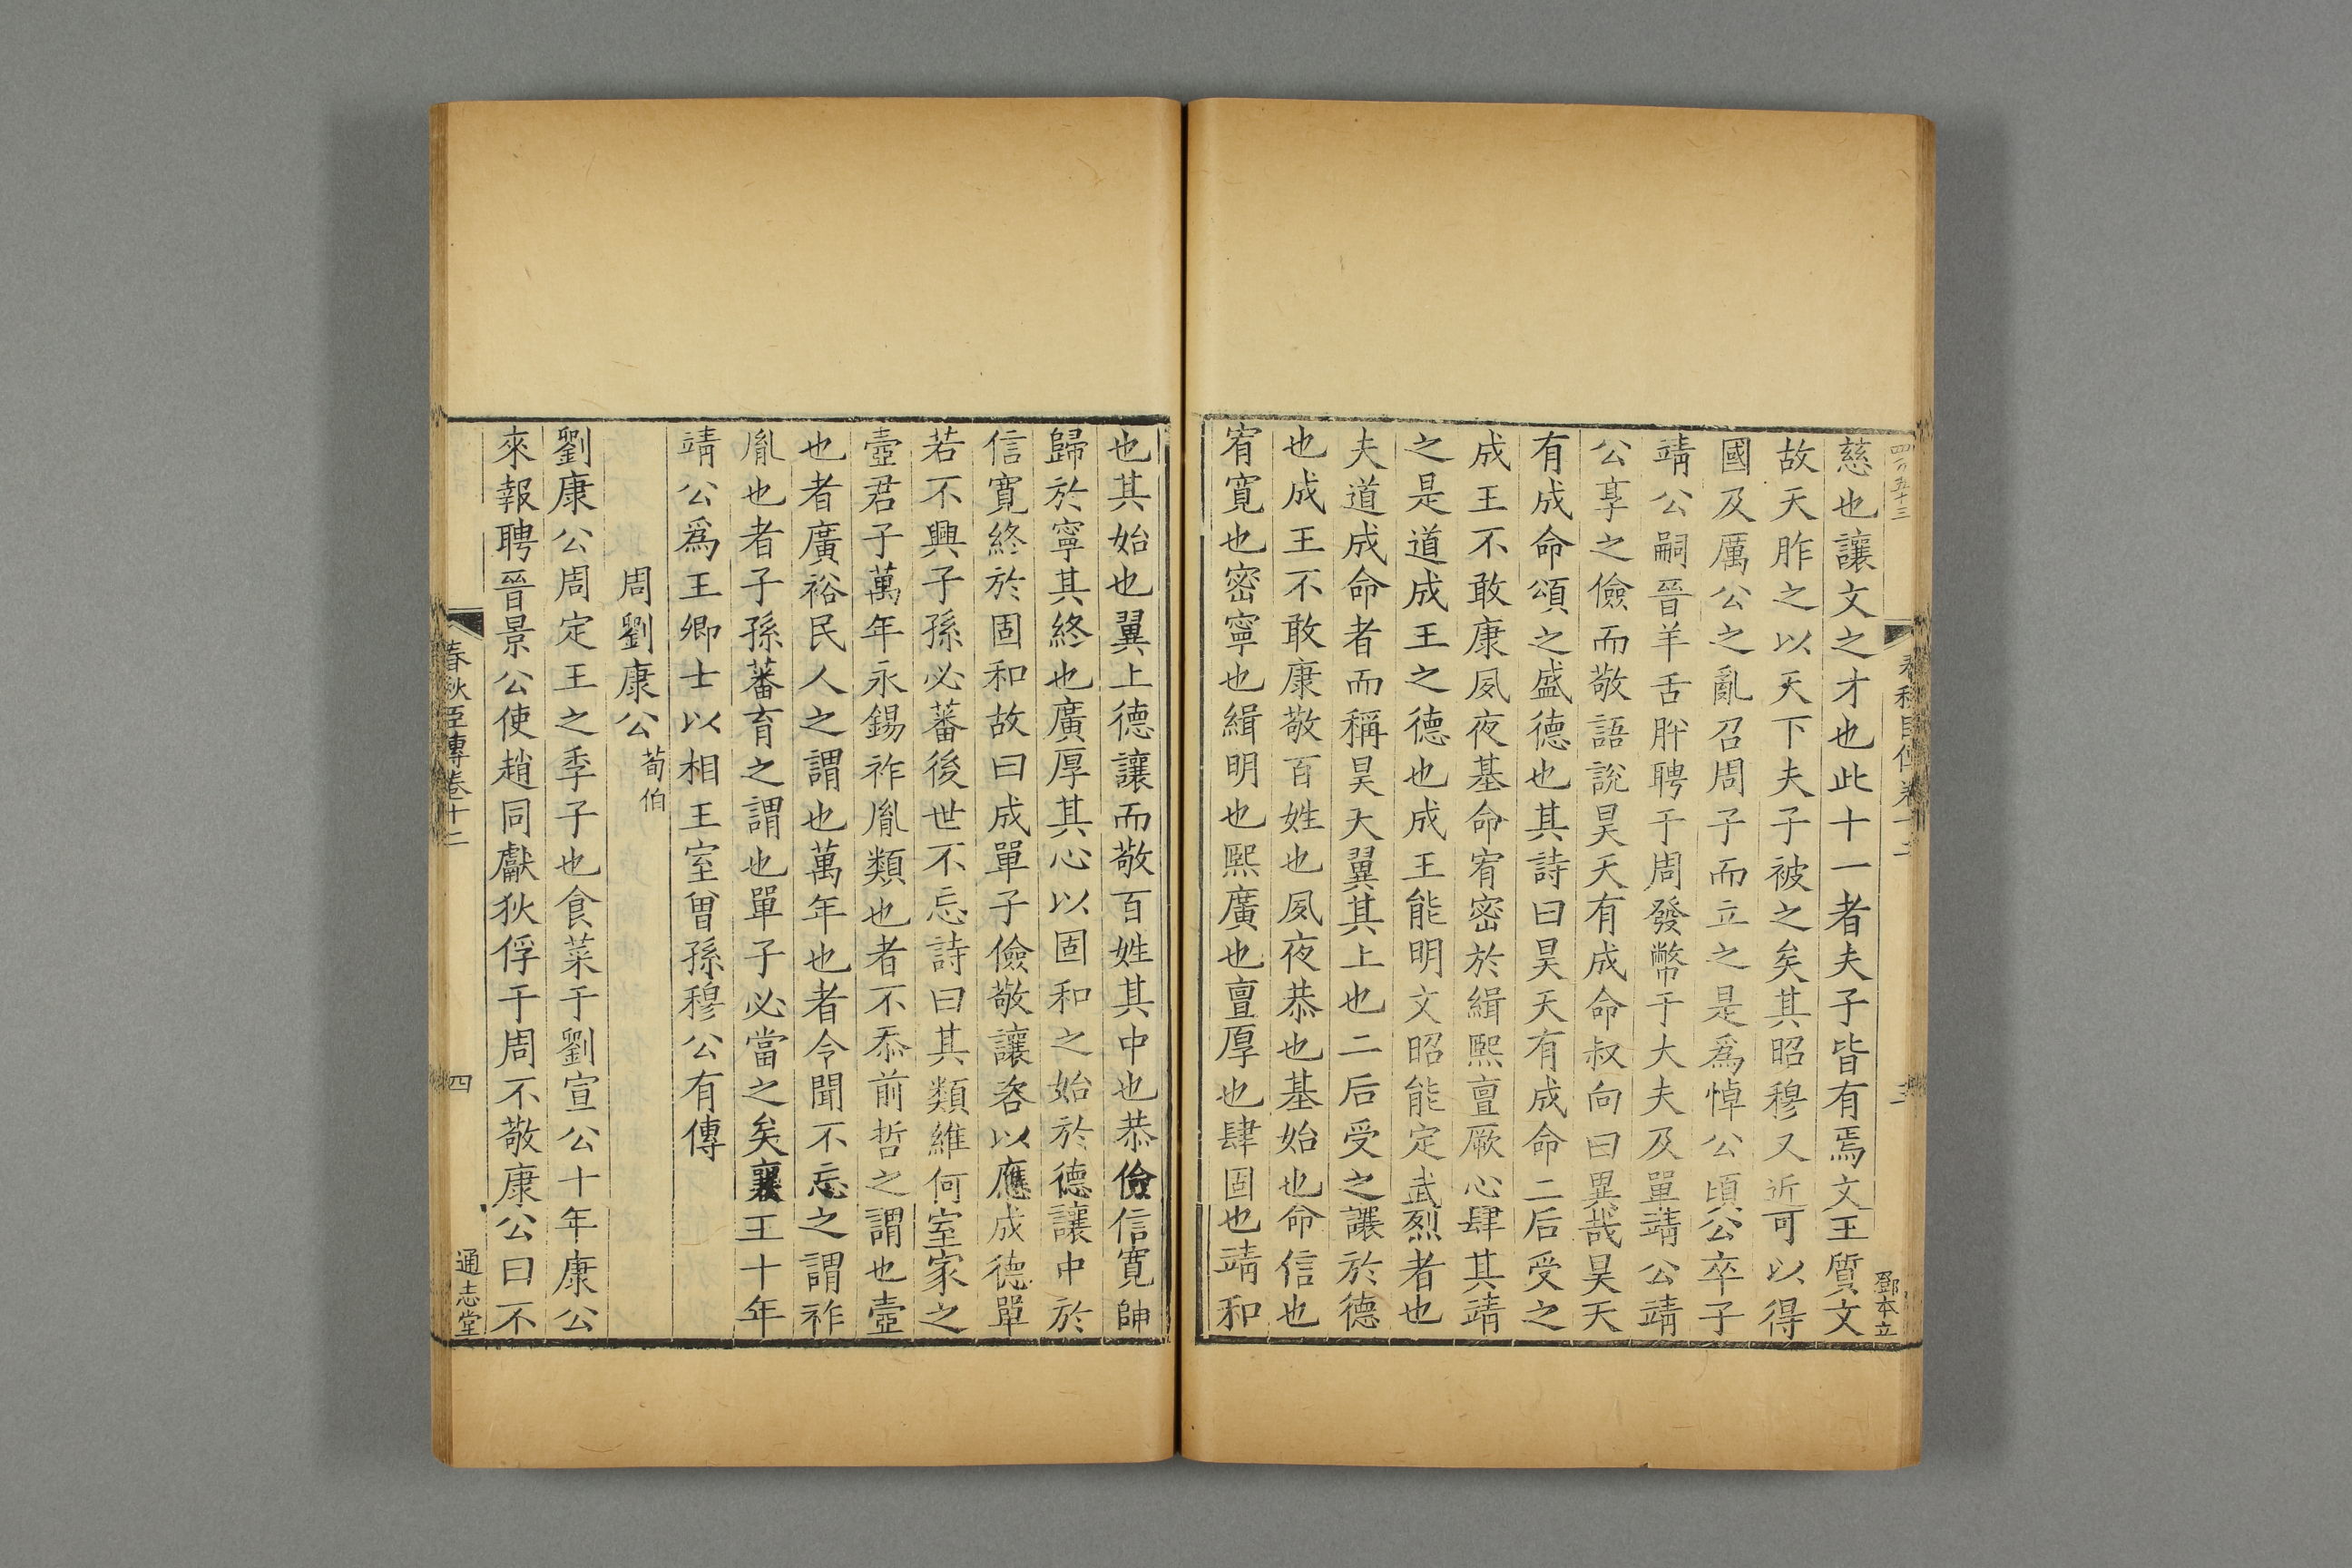 四百五十三
春秋臣傳卷十二
三
鄧本立
慈也讓文之才也此十一者夫子皆有焉文王質文
故天胙之以天下夫子被之矣其昭穆又近可以得
國及厲公之亂召周子而立之是爲悼公頃公卒子
靖公嗣晉羊舌肸聘于周發幣于大夫及單靖公靖
公享之儉而敬語說昊天有成命叔向曰異哉昊天
有成命頌之盛德也其詩曰昊天有成命二后受之
成王不敢康夙夜基命宥密於緝熙亶厥心肆其靖
之是道成王之德也成王能明文昭能定武烈者也
夫道成命者而稱昊天翼其上也二后受之讓於德
也成王不敢康敬百姓也夙夜恭也基始也命信也
宥寬也密寧也緝明也熙廣也亶厚也肆固也靖和
也其始也翼上德讓而敬百姓其中也恭儉信寬帥
歸於寧其終也廣厚其心以固和之始於德讓中於
信寬終於固和故曰成單子儉敬讓咨以應成德單
若不興子孫必蕃後世不忘詩曰其類維何室家之
壼君子萬年永錫祚胤類也者不忝前哲之謂也壼
也者廣裕民人之謂也萬年也者令聞不忘之謂祚
胤也者子孫蕃育之謂也單子必當之矣襄王十年
靖公爲王卿士以相王室曾孫穆公有傳
周劉康公 荀伯
劉康公周定王之季子也食菜于劉宣公十年康公
來報聘晉景公使趙同獻狄俘于周不敬康公曰不
春秋臣傳卷十二
四
通志堂